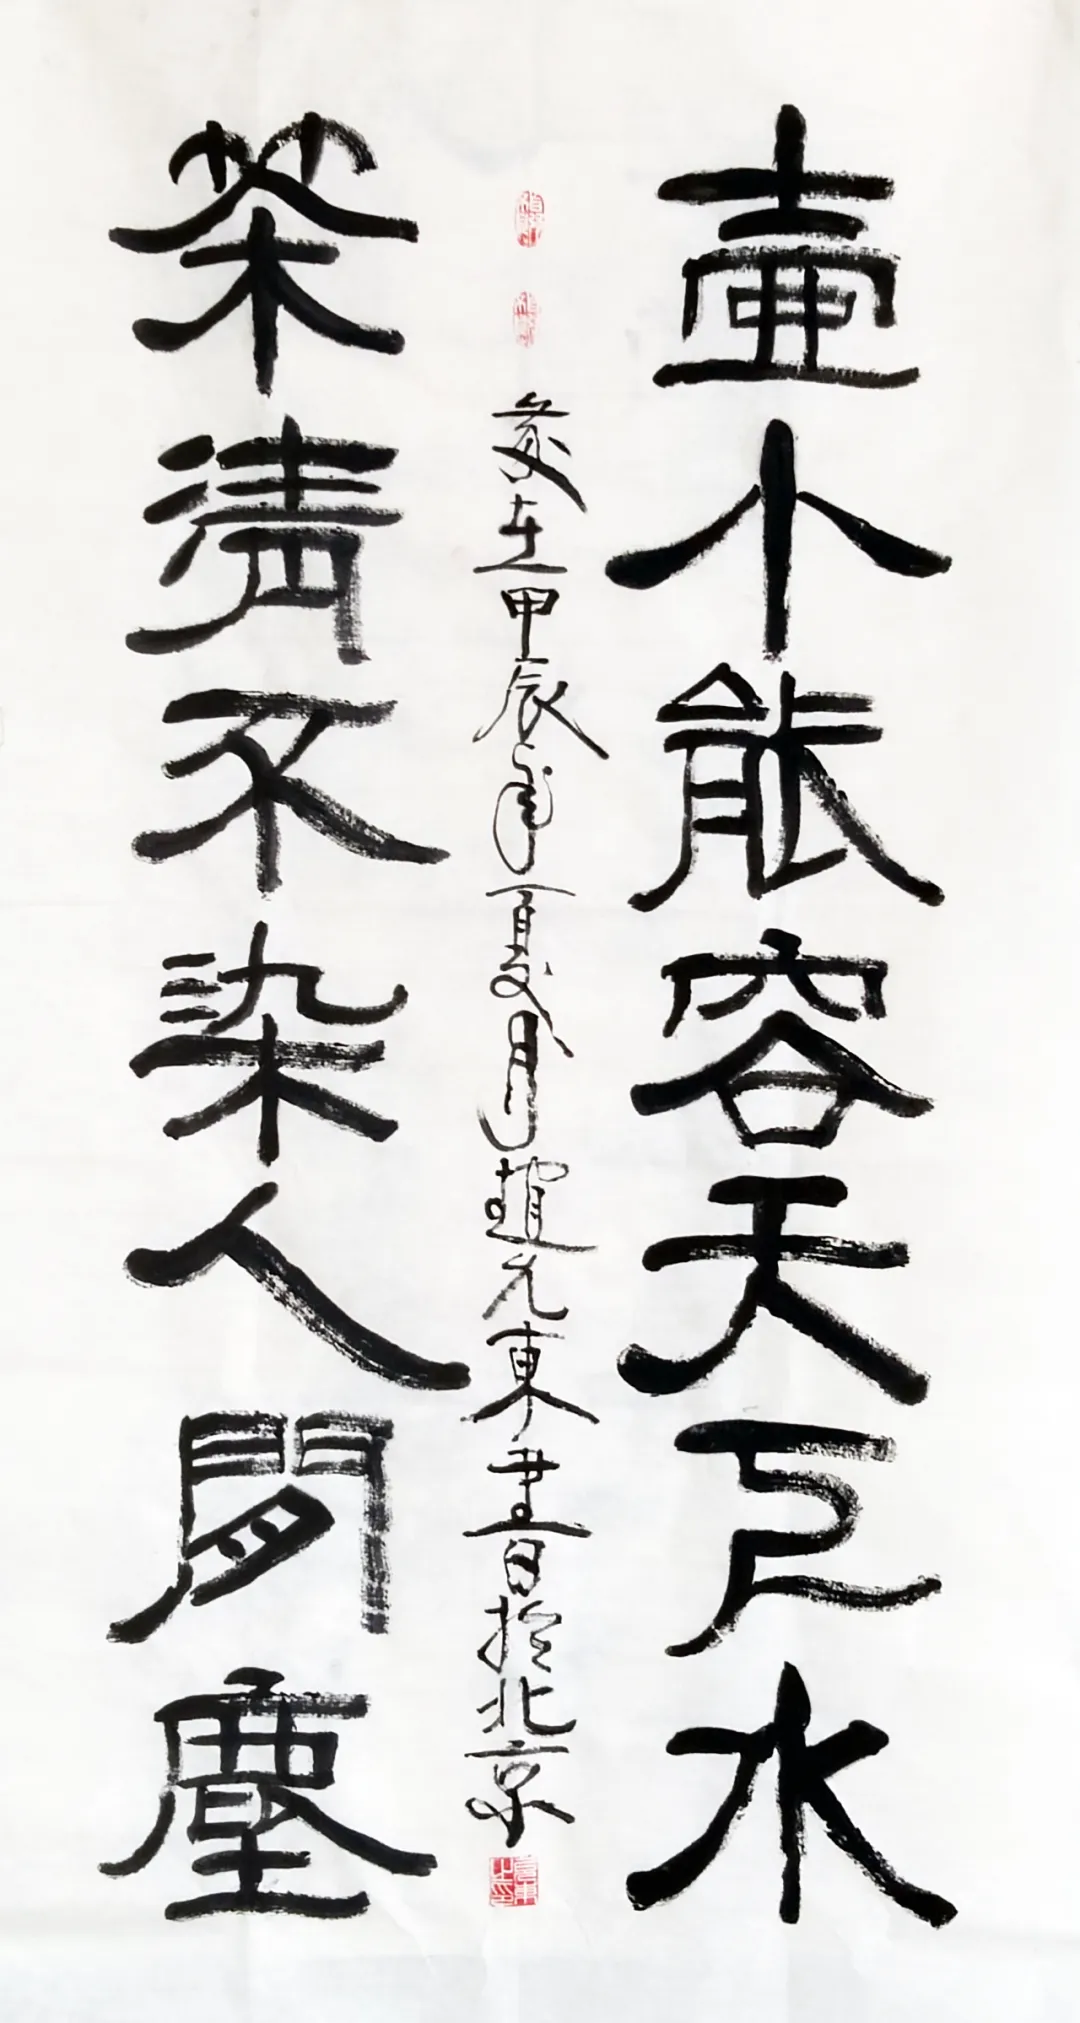 壺小能容天下水
茶清不染人閒塵
歲在甲辰年夏月趙允東書於北京